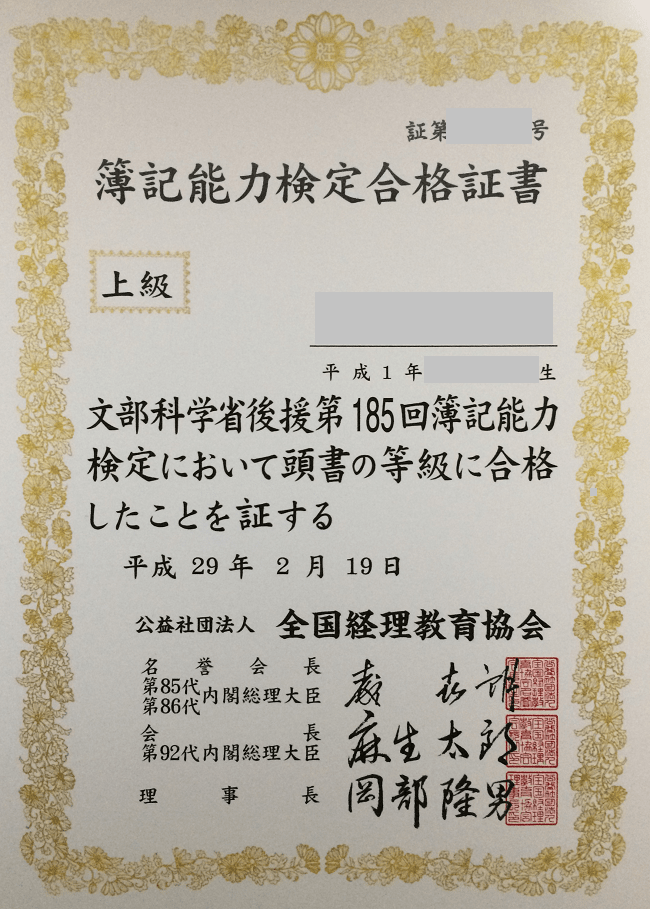 経
証第 号
簿記能力検定合格証書
上級
平成1年 生
文部科学省後援第185回簿記能力
検定において頭書の等級に合格
したことを証する
平成 29 年 2 月 19 日
公益社団法人 全国経理教育協会
名誉会長
第85代
第86代 内閣総理大臣 森 喜朗
会長
第92代 内閣総理大臣 麻生太郎
理事長 岡部隆男